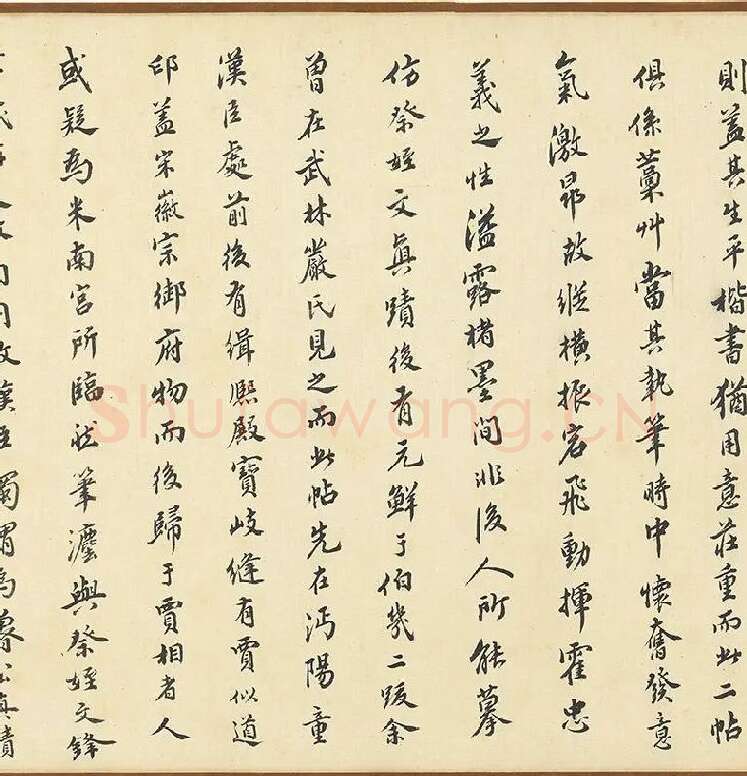 則蓋其生平楷書猶用意莊重而此二帖
俱係藁艸當其執筆時中懷奮發意
氣激昂故縱橫振宕飛動揮霍忠
義之性溢露楮墨間非後人所能摹
仿祭姪文眞蹟後有元鮮于伯幾二跋余
曾在武林嚴氏見之而此帖先在沔陽童
漢臣處前後有緝熙殿寶岐縫有賈似道
印蓋宋徽宗御府物而後歸于賈相者人
或疑爲米南宮所臨然筆灋與祭姪文鋒
漢臣獨謂爲魯公真蹟
Shufawang.CN